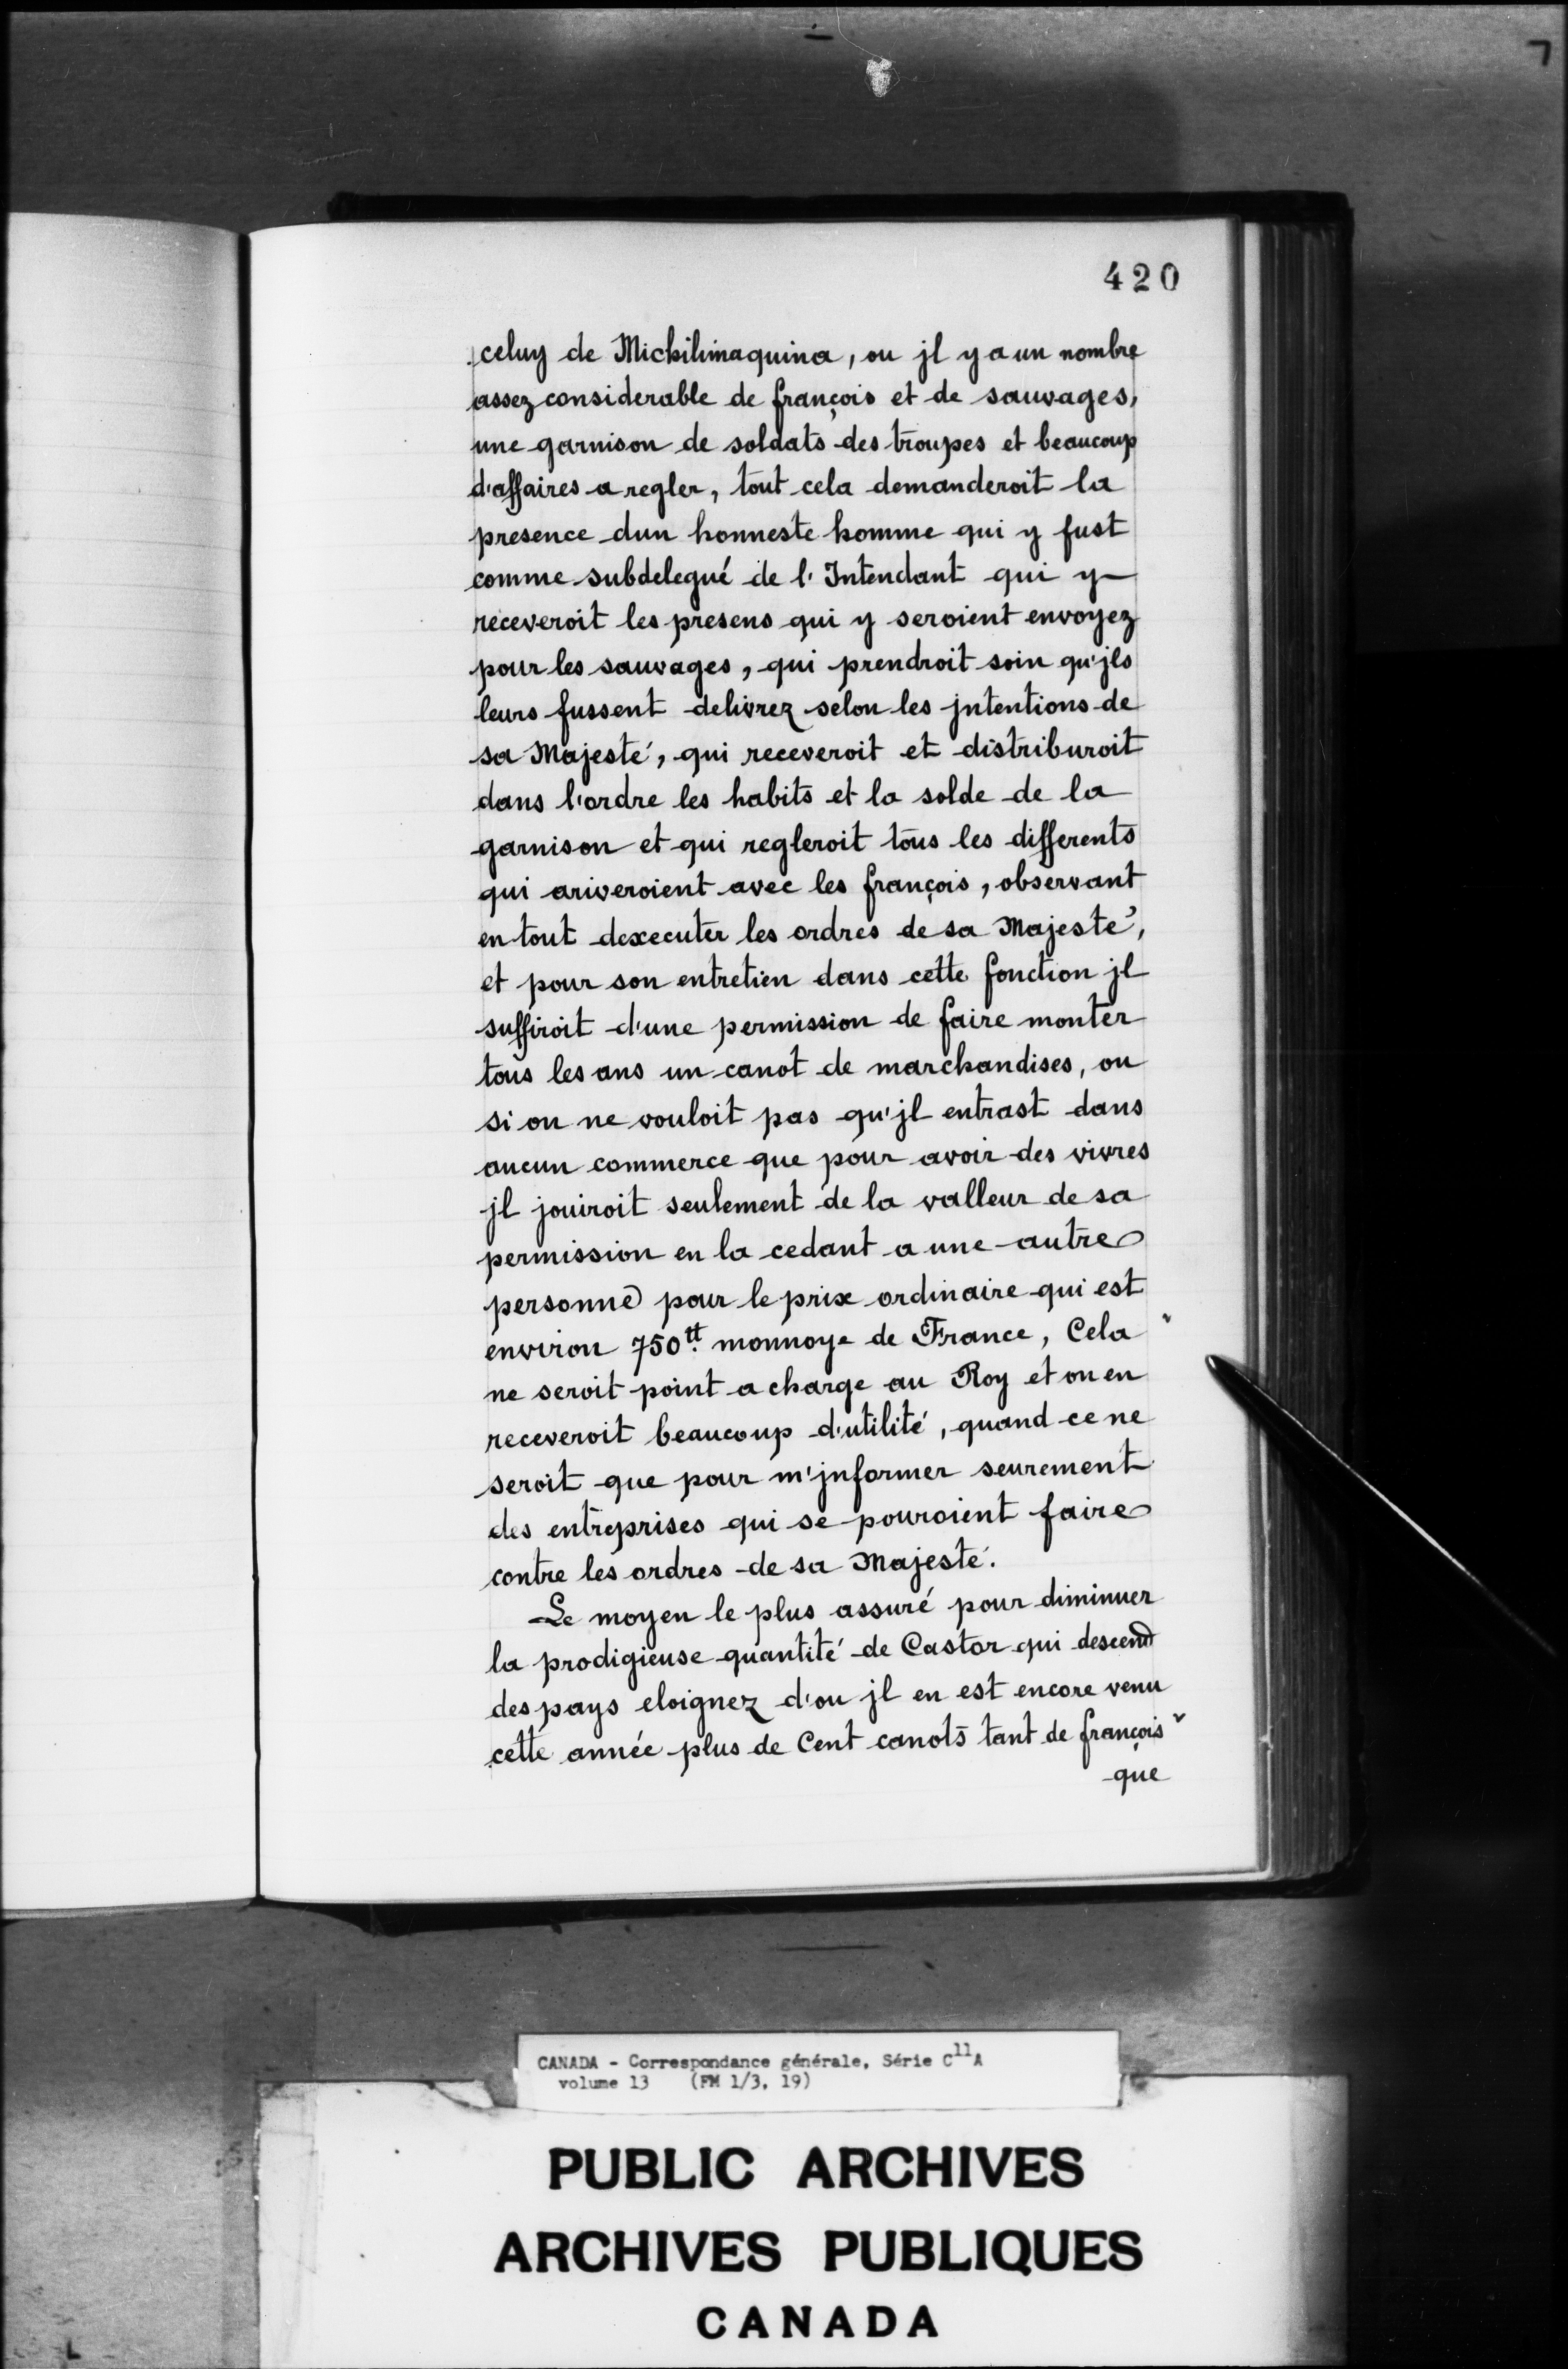 7
420
celuy de Michilimaquina, ou jl y a un nombre
assez considerable de françois et de sauvages,
une garnison de soldats des troupes et beaucoup
d'affaires a regler, tout cela demanderoit la
presence dun honneste homme qui y fust
comme subdelegué de l'Intendant qui y
receveroit les presens qui y seroient envoyez
pour les sauvages, qui prendroit soin qu'jls
leurs fussent delivrez selon les jntentions de
sa Majesté, qui receveroit et distriburoit
dans l'ordre les habits et la solde de la
garnison et qui regleroit tous les differents
qui ariveroient avec les françois, observant
en tout dexecuter les ordres de sa Majesté,
et pour son entretien dans cette fonction jl
suffiroit d'une permission de faire monter
tous les ans un canot de marchandises, ou
si on ne vouloit pas qu'jl entrast dans
aucun commerce que pour avoir des vivres
jl jouiroit seulement de la valleur de sa
permission en la cedant a une autre
personne pour le prix ordinaire qui est
environ 750tt. monnoye de France, Cela
ne seroit point a charge au Roy et on en
receveroit beaucoup d'utilité, quand ce ne
seroit que pour m'jnformer seurement
des entreprises qui se pouroient faire
contre les ordres de sa Majesté.
Le moyen le plus assuré pour diminuer
la prodigieuse quantité de Castor qui descend
des pays eloignez d'ou jl en est encore venu
cette année plus de Cent canots tant de françois
que
CANADA - Correspondance générale, Série C11A
volume 13 (FM 1/3, 19)
PUBLIC ARCHIVES
ARCHIVES PUBLIQUES
CANADA
L